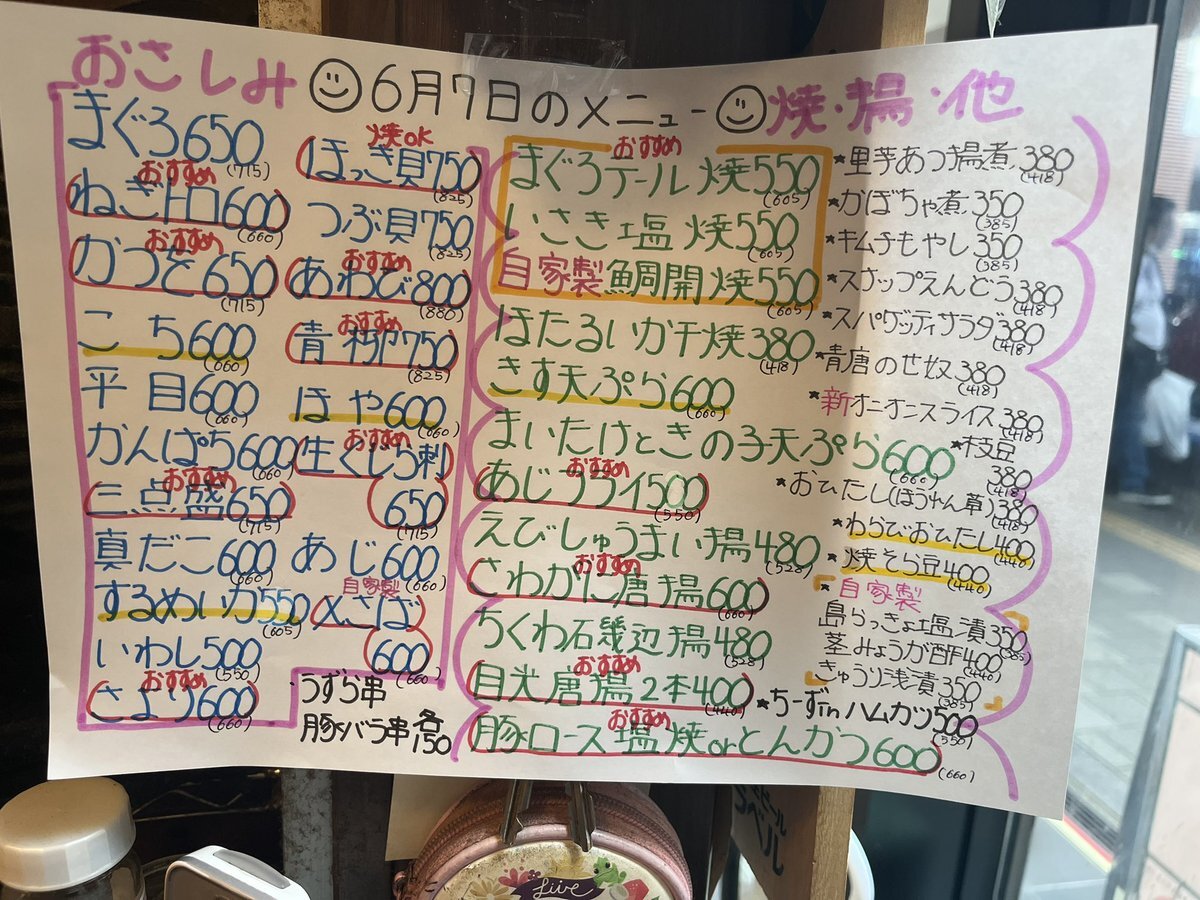 おさしみ ☺6月7日のメニュー☺ 焼・揚・他
まぐろ650
(715)
おすすめ
ねぎトロ600
(660)
おすすめ
かつを650
(715)
こち600
(660)
平目600
(660)
かんぱち600
(660)
おすすめ
三点盛650
(715)
真だこ600
(660)
するめいか550
(605)
いわし500
(550)
おすすめ
さより600
(660)
焼OK
ほっき貝750
(825)
つぶ貝750
(825)
おすすめ
あわび800
(880)
おすすめ
青柳750
(825)
ほや600
(660)
おすすめ
生くじら刺
650
(715)
あじ600
(660)
自家製
〆さば
600
(660)
うずら串
豚バラ串 各150
おすすめ
まぐろテール焼550
(605)
いさき塩焼550
(605)
自家製鯛開焼550
(605)
ほたるいか干焼380
(418)
きす天ぷら600
(660)
まいたけときの子天ぷら600
(660)
おすすめ
あじフライ500
(550)
えびしゅうまい揚480
(528)
おすすめ
さわがに唐揚600
(660)
ちくわ石幾辺揚480
(528)
おすすめ
目光唐揚2本400
(440)
おすすめ
豚ロース塩焼orとんかつ600
(660)
★里芋あつ揚煮380
(418)
★かぼちゃ煮350
(385)
★キムチもやし350
(385)
★スナップえんどう380
(418)
★スパゲッティサラダ380
(418)
★青唐のせ奴380
(418)
★新オニオンスライス380
(418)
★枝豆
380
(418)
★おひたし(ほうれん草)380
(418)
★わらびおひたし400
(440)
★焼そら豆400
(440)
★自家製
島らっきょ塩漬350
(385)
茎みょうが酢400
(440)
きゅうり浅漬350
(385)
★ちーずinハムカツ500
(550)
Live